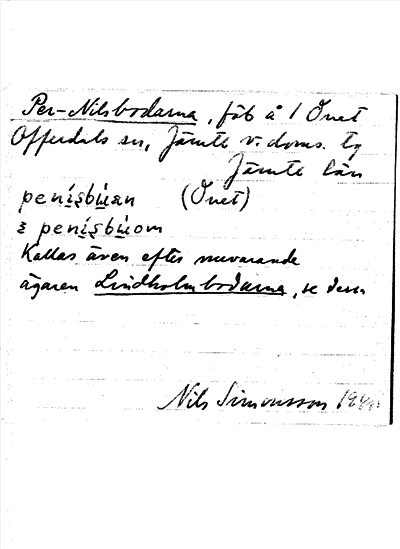 Per-Nilsbodarna, fäb å 1 Önet
Offerdals sn, Jämte v. doms. tg
Jämte län
penı́sbʉ̀an (Önet)
ɛ penı́sbʉ̀om
Kallas även efter nuvarande
ägaren Lindholmbodarna, se dessa
Nils Simonsson